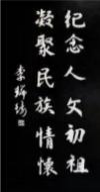 纪念人文初祖
凝聚民族情怀